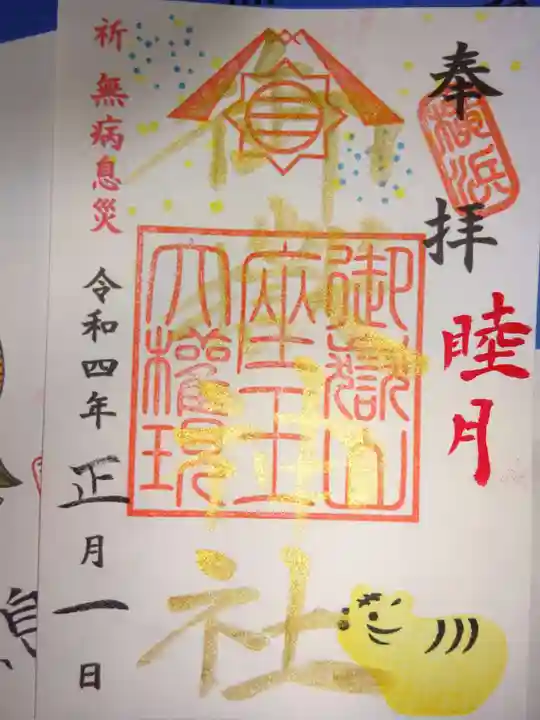 奉拝
横浜
睦月
御嶽山
座王
大権現
御嶽神社
祈 無病息災
令和四年正月一日